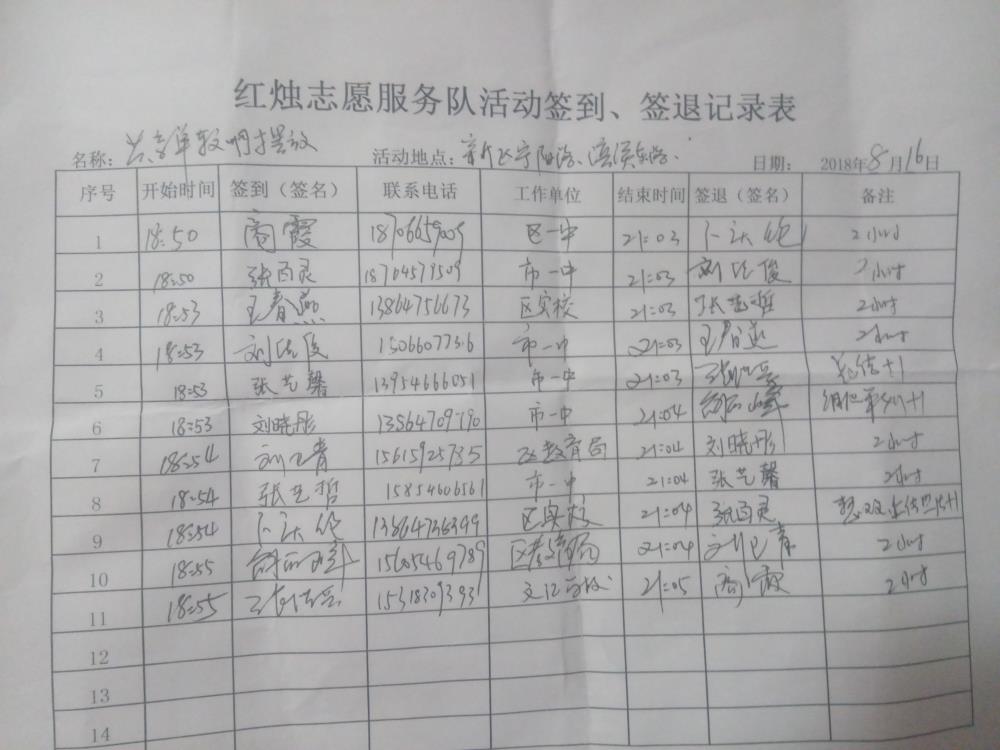 红烛志愿服务队活动签到、签退记录表
名称：共享单车 摆放 活动地点： 日期： 2018年8月16日
序号 开始时间 签到（签名） 联系电话 工作单位 结束时间 签退（签名） 备注
1 18:50 商霞 18706659009 区一中 21:03 卜庆伦 2小时
2 18:50 张百灵 18704579509 市一中 21:03 刘法俊 2小时
3 18:53 王春燕 13864756673 区实校 21:03 张艺哲 2小时
4 18:53 刘法俊 15066077316 市一中 21:03 王春燕 2小时
5 18:53 张艺馨 13954666051 市一中 21:03 总结+1
6 18:53 刘晓彤 13564709790 市一中 21:04 +1
7 18:54 刘卫青 15615925735 区教育局 21:04 刘晓彤 2小时
8 18:54 张艺哲 15854606561 市一中 21:04 张艺馨 2小时
9 18:54 卜庆伦 13864736399 区实校 21:04 张百灵 上传照片+1
10 18:55 15605469789 区教育局 21:04 刘卫青 2小时
11 18:55 15318309393 21:05 商霞 2小时
12
13
14